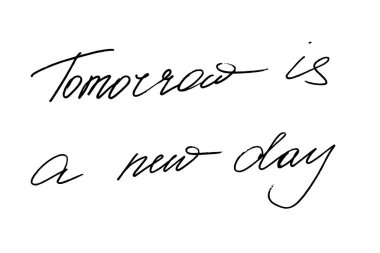 Tomorrow is
a new day